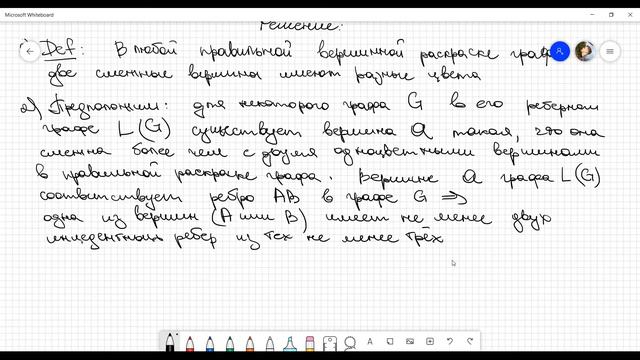 Microsoft Whiteboard
Решение:
1) Def: В любой правильной вершинной раскраске графа
две смежные вершины имеют разные цвета
2) Предположим: для некоторого графа G в его реберном
графе L(G) существует вершина a такая, что она
смежна более чем с двумя одноцветными вершинами
в правильной раскраске графа. Вершине a графа L(G)
соответствует ребро AB в графе G ⇒
одна из вершин (A или B) имеет не менее двух
инцедентных ребер из тех не менее трёх